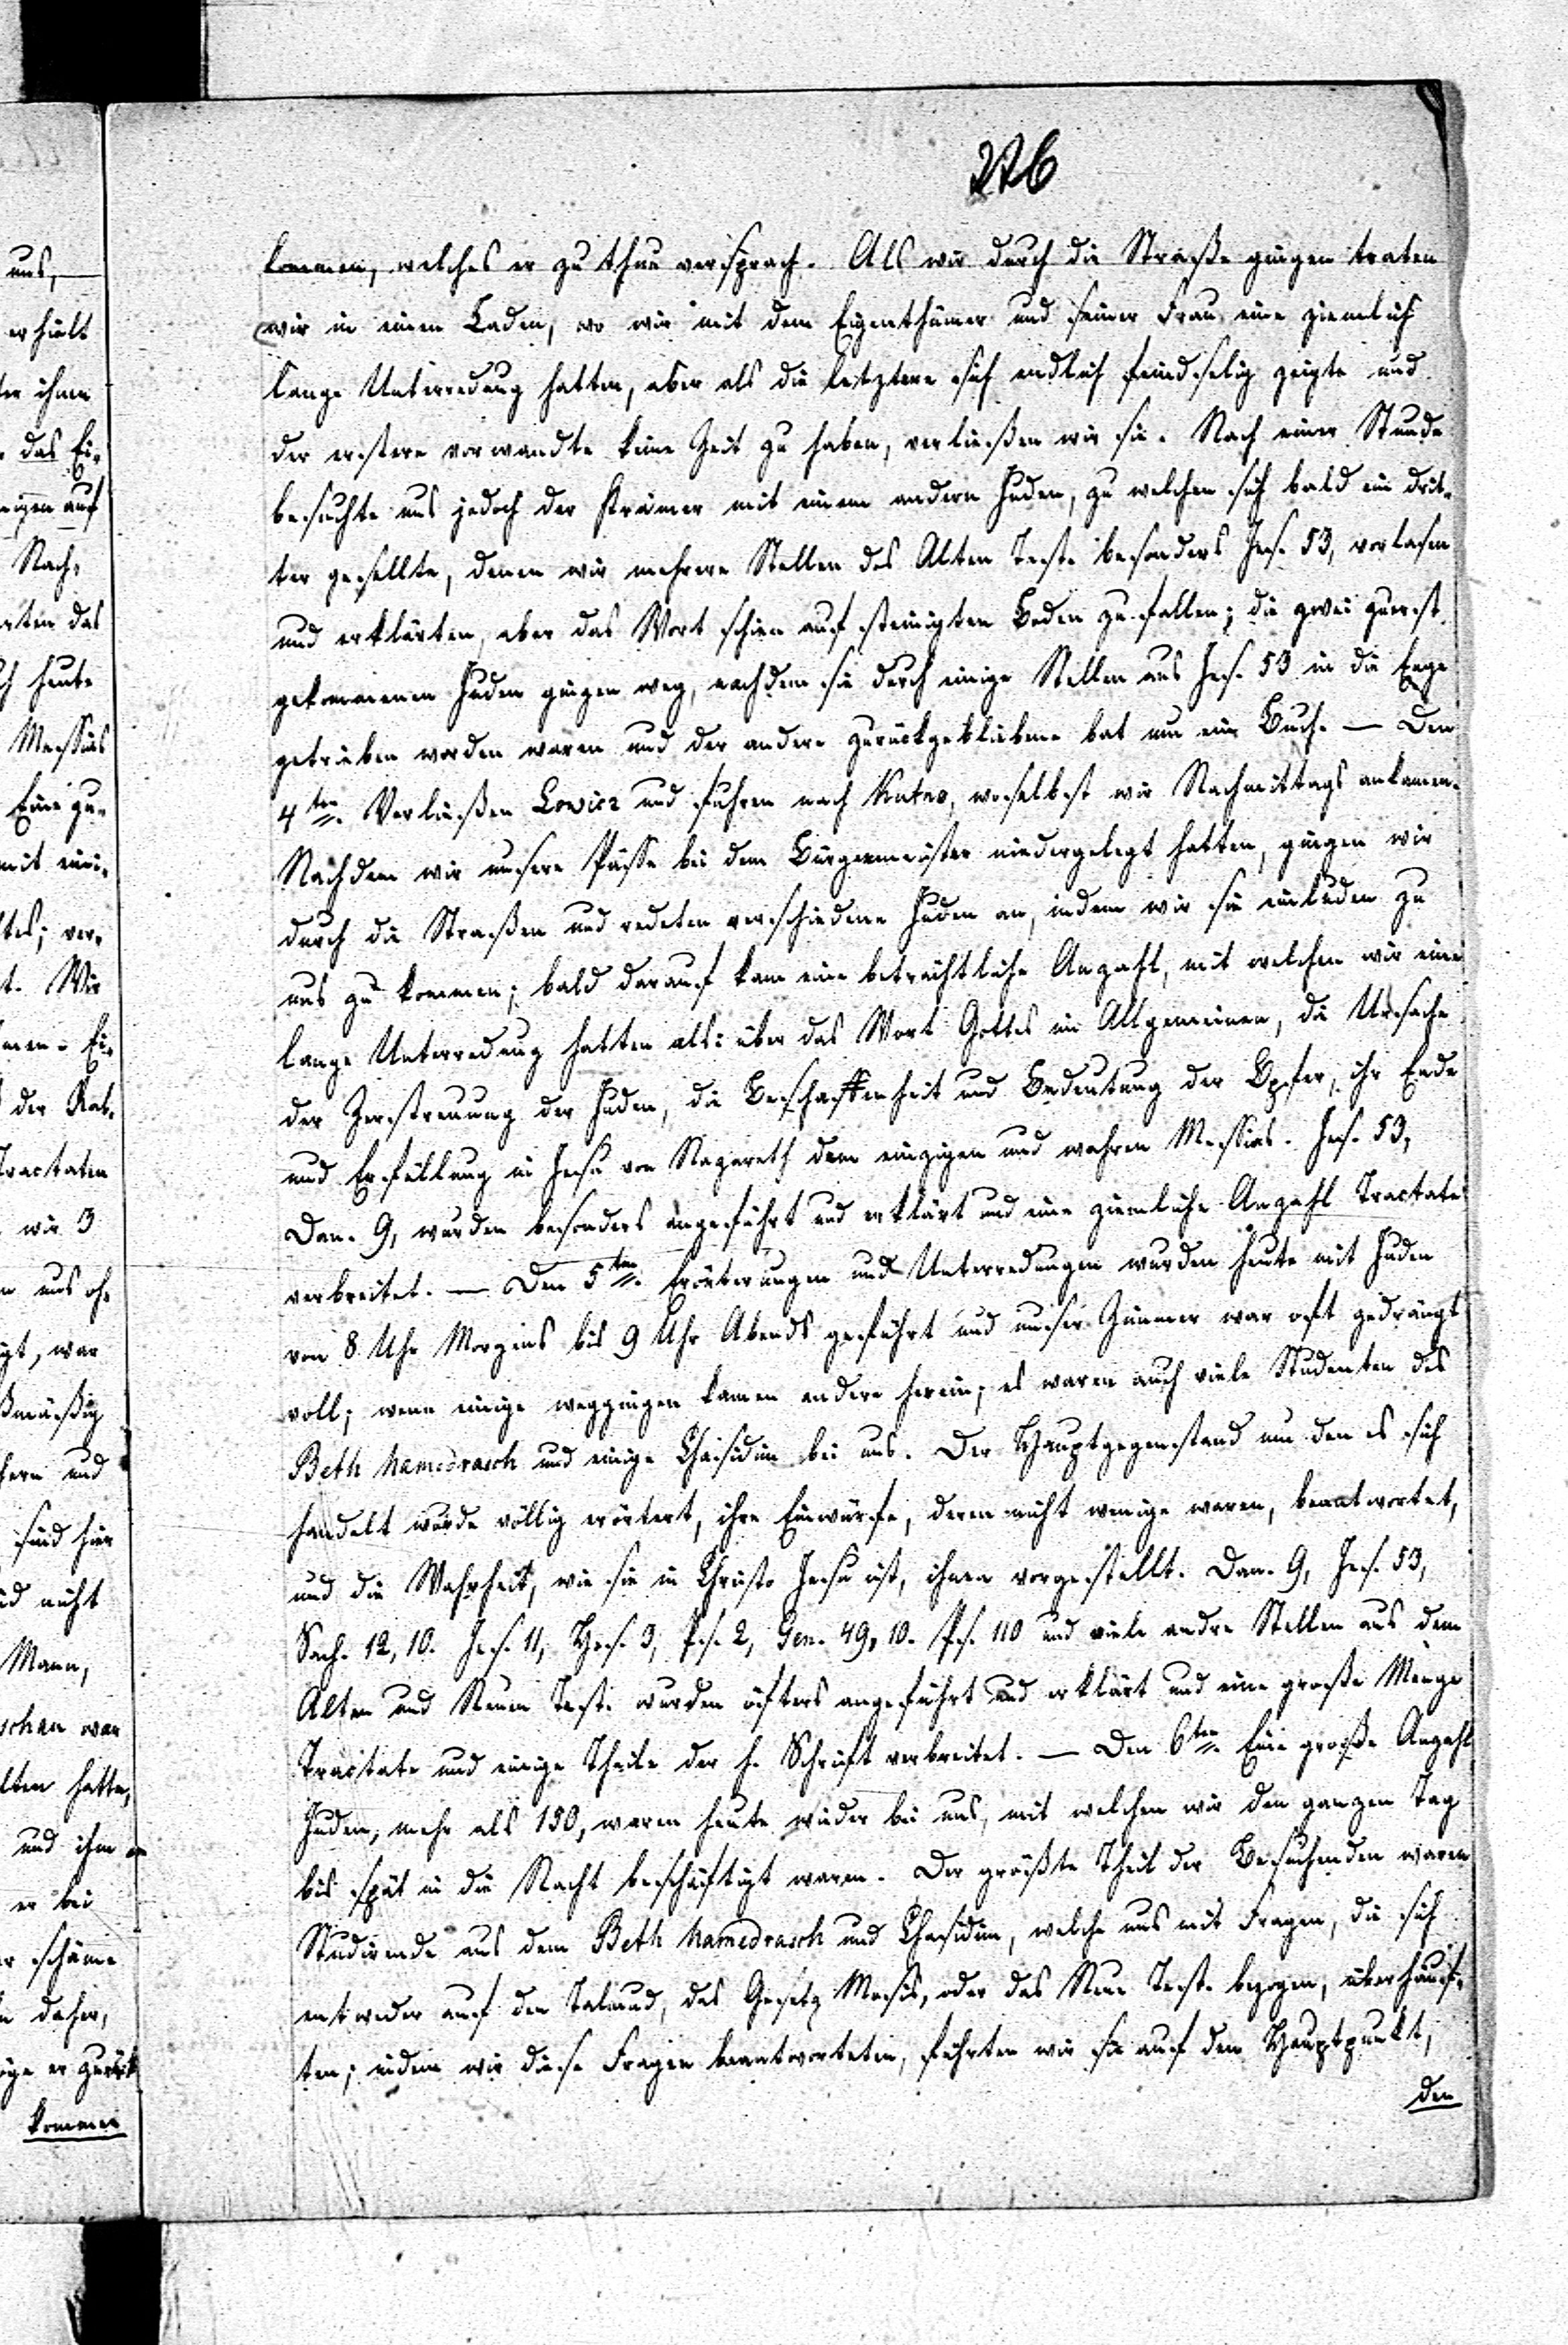 276
kommen, welches er zu thun versprach. Als wir durch die Straße gingen traten
wir in einen Laden, wo wir mit dem Eigenthümer und seiner Frau eine ziemlich
lange Unterredung hatten, aber als die letztere sich endlich feindselig zeigte und
der erstere vorwandte keine Zeit zu haben, verließen wir sie. Nach einer Stunde
besuchte uns jedoch der Krämer mit einem andern Juden, zu welchen sich bald ein drit-
ter gesellte, denen wir mehrere Stellen des Alten Test. besonders Jes. 53, vorlasen
und erklärten, aber das Wort schien auf steinigten Boden zu fallen; die zwei zuerst
gekommenen Juden gingen weg, nachdem sie durch einige Stellen aus Jes. 53 in die Enge
getrieben worden waren und der andere zurückgebliebene bat um ein Buch. — Den
4ten. Verließen Lowicz und fuhren nach Kutno, woselbst wir Nachmittags ankamen.
Nachdem wir unsere Pässe bei dem Bürgermeister niedergelegt hatten, gingen wir
durch die Straßen und redeten verschiedene Juden an, indem wir sie einluden zu
uns zu kommen; bald darauf kam eine beträchtliche Anzahl, mit welchen wir eine
lange Unterredung hatten als: über das Wort Gottes im Allgemeinen, die Ursache
der Zerstreuung der Juden, die Beschaffenheit und Bedeutung der Opfer, ihr Ende
und Erfüllung in Jesu von Nazareth dem einzigen und wahren Messias. Jes. 53,
Dan. 9, wurden besonders angeführt und erklärt und eine ziemliche Anzahl Tractate
verbreitet. — Den 5ten. Erörterungen und Unterredungen wurden heute mit Juden
von 8 Uhr Morgens bis 9 Uhr Abends geführt und unser Zimmer war oft gedrängt
voll; wenn einige weggingen kamen andere herein; es waren auch viele Studenten des
Beth hamedrasch und einige Chasidim bei uns. Der Hauptgegenstand um den es sich
handelt wurde völlig erörtert, ihre Einwürfe, deren nicht wenige waren, beantwortet,
und die Wahrheit, wie sie in Christo Jesu ist, ihnen vorgestellt. Dan. 9, Jes. 53,
Sach. 12, 10. Jes. 11, Hos. 3, Ps. 2, Gen. 49, 10. Ps. 110 und viele andre Stellen aus dem
Alten und Neuen Test. wurden öfters angeführt und erklärt und eine große Menge
Tractate und einige Theile der h. Schrift verbreitet. — Den 6ten. Eine große Anzahl
Juden, mehr als 150, waren heute wieder bei uns, mit welchen wir den ganzen Tag
bis spät in die Nacht beschäftigt waren. Der größte Theil der Besuchenden waren
Studirende aus dem Beth hamedrasch und Chasidim, welche uns mit Fragen, die sich
entweder auf den Talmud, das Gesetz Mosis, oder das Neue Test. bezogen, überhäuf-
ten; indem wir diese Fragen beantworteten, führten wir sie auf den Hauptpunkt,
den
uns,
erhielt
ihnen
das Ei-
auf
Nach-
das
heute
Messias
Eine zu-
mit eini-
ver-
Wir
der Rab-
Tractaten
wir 3
uns
war
und
sind hier
nicht
Mann,
war
hatte,
und ihm
er bei
schäme
daher,
er zurück
kommen